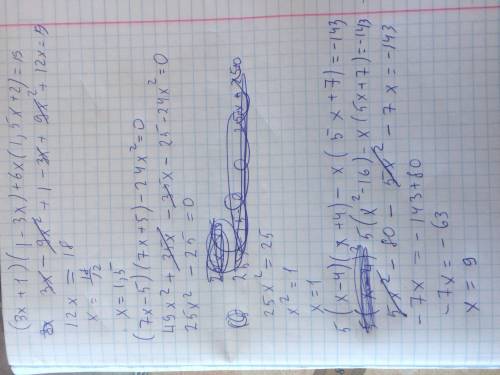 (3x+1)(1-3x)+6x(1,5x+2)=15
3x-9x²+1-3x+9x²+12x=19
12x=18
x=18/12
x=1,5
(7x-5)(7x+5)-24x²=0
49x²+35x-35x-25-24x²=0
25x²-25=0
25x²=25
x²=1
x=1
5(x-4)(x+4)-x(5x+7)=-143
5(x²-16)-x(5x+7)=-143
5x²-80-5x²-7x=-143
-7x=-143+80
-7x=-63
x=9